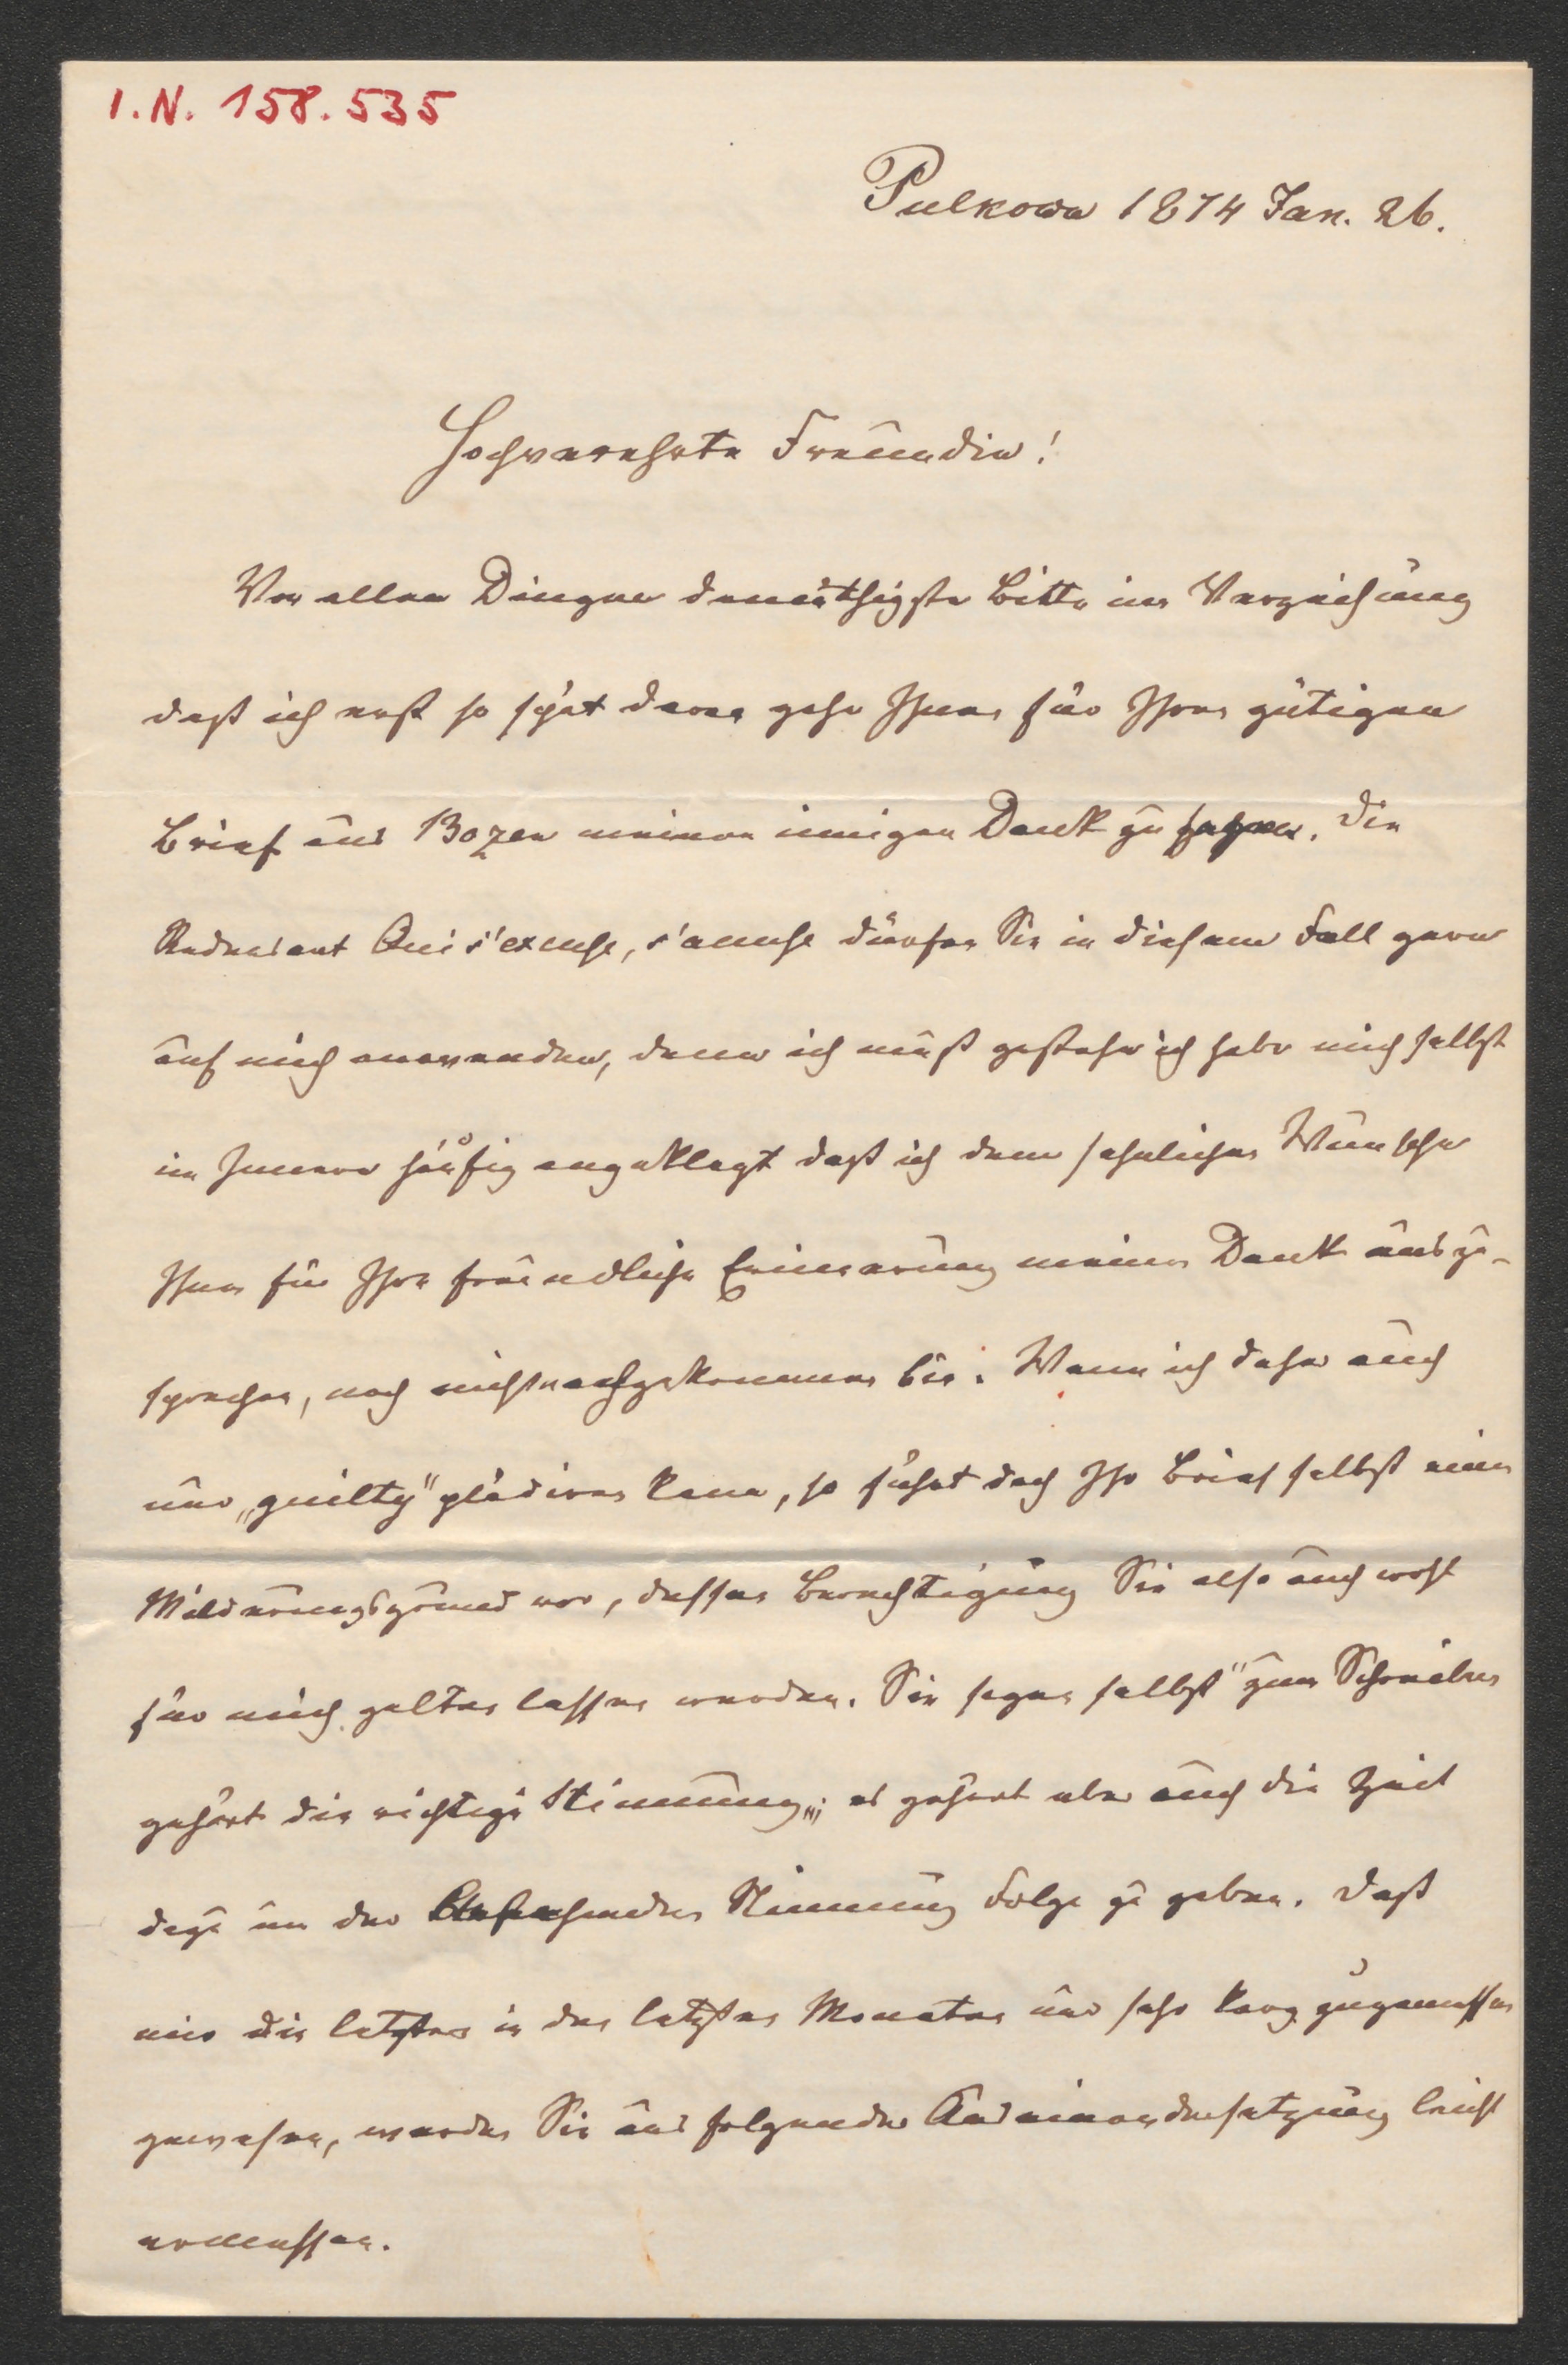 I.N. 158.535
Pulkowa 1874 Jan. 26.
Hochverehrte Freundin!
Vor allen Dingen demüthigste Bitte um Verzeihung
daß ich erst so spät daran gehe Ihnen für Ihren gütigen
Brief aus Bozen meinen innigen Dank zu sagen. Die
Redensart Qui s'excuse, s'accuse dürfen Sie in diesem Fall gern
auf mich anwenden, denn ich muß gestehn ich habe mich selbst
im Innern häufig angeklagt daß ich dem sehnlichen Wunsche
Ihnen für Ihre freundliche Erinnerung meinen Dank auszu-
sprechen, noch nicht nachgekommen bin. Wenn ich daher auch
nur „guilty" plädiren kann, so führt doch Ihr Brief selbst einen
Milderungsgrund vor, dessen Berechtigung Sie also auch wohl
für mich gelten lassen werden. Sie sagen selbst "zum Schreiben
gehört die richtige Stimmung„; es gehört aber auch die Zeit
dazu um der Stimmung Folge zu geben. Daß
mir die letztere in den letzten Monaten nur sehr karg zugemessen
gewesen, werden Sie aus folgender Auseinandersetzung leicht
ermessen.